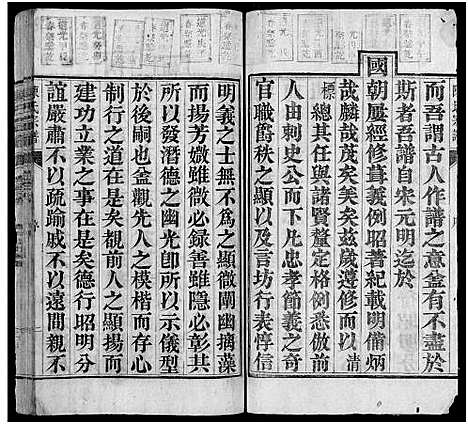 而吾謂古人作譜之意蓋有不盡於
斯者吾譜自宋元明迄於
國朝屢經修葺義例昭著紀載明備炳
哉麟哉茂矣美矣茲歲遵修以清
標人與諸賢釐定格例悉倣前
人由刺史公而下凡忠孝節義之奇
官職爵秩之顯以及言坊行表惇信
明義之士無不為之顯微闡幽摛藻
而揚芳媺雖微必錄善雖隱必彰共
潛德之幽光卽所以示儀型
於後嗣也蓋觀先人之模楷而存存
制行之道在是矣覩前人之顯揚而
建功立業之事在是矣德行昭明分
誼嚴肅不以疏踰戚不以遠間親不
陳氏宗譜